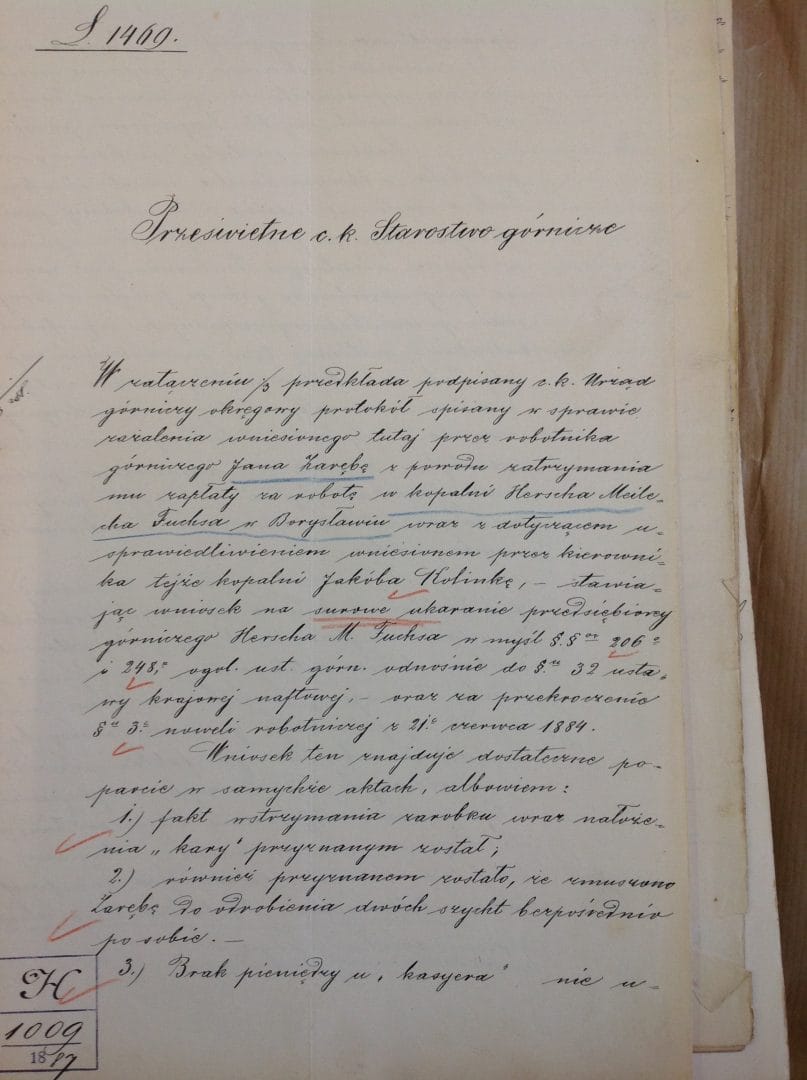 L. 1469.
Prześwietne c. k. Starostwo górnicze
W załączeniu ·/3 przedkłada podpisany c. k. Urząd
górniczy okręgowy protokół spisany w sprawie
zażalenia wniesionego tutaj przez robotnika
górniczego Jana Zarębę z powodu zatrzymania
mu zapłaty za robotę w kopalni Herscha Meile-
cha Fuchsa w Borysławiu wraz z dotyczącem u-
sprawiedliwieniem wniesionem przez kierowni-
ka tejże kopalni Jakóba Kolinkę, – stawia-
jąc wniosek na surowe ukaranie przedsiębiorcy
górniczego Herscha M. Fuchsa w myśl §.§ów 206o
i 248,o ogol. ust. górn. odnośnie do §.u 32 usta-
wy krajowej naftowej, – oraz za przekroczenie
§u 3.o noweli robotniczej z 21.o czerwca 1884.
Wniosek ten znajduje dostateczne po-
parcie w samychże aktach, albowiem:
1.) fakt wstrzymania zarobku wraz nałoże-
nia „kary" przyznanym został;
2.) również przyznanem zostało, że zmuszono
Zarębę do odrobienia dwóch szycht bezpośrednio
po sobie. –
3.) Brak pieniędzy u „kasyera" nie u-
H
1009
1887